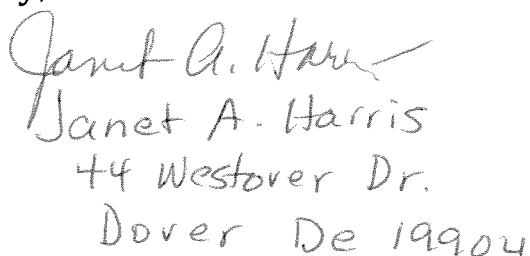 Janet A. Harris
Janet A. Harris
44 Westover Dr.
Dover De 19904